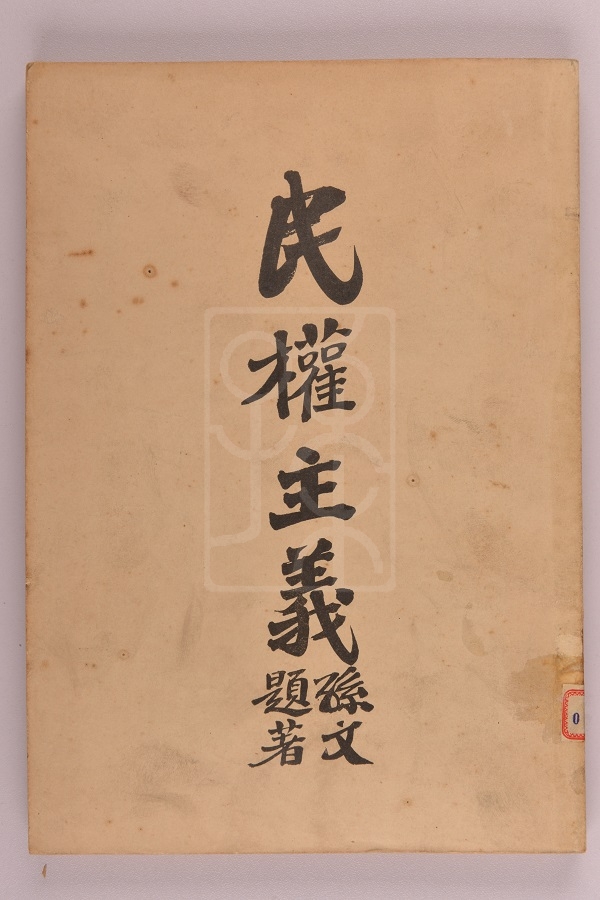 民權主義
孫文
題著
0